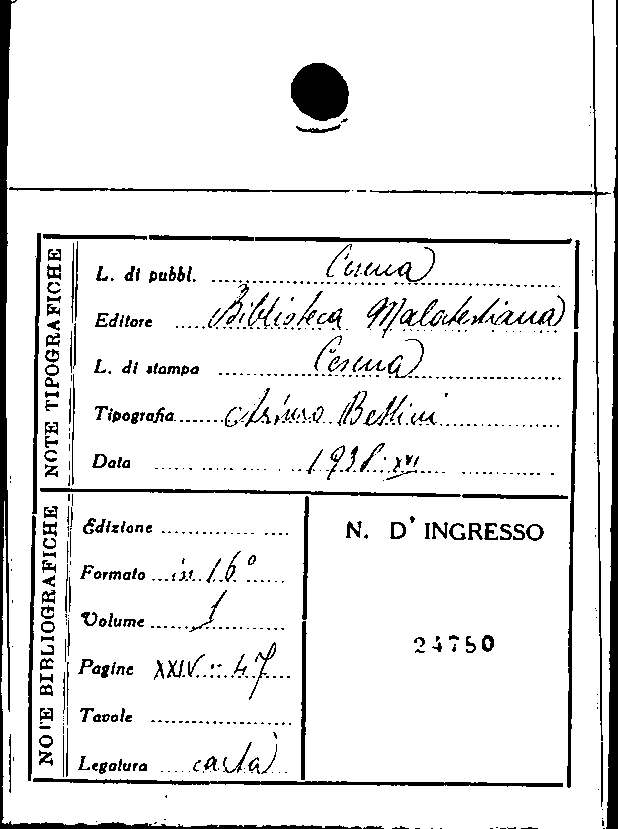 NOTE TIPOGRAFICHE
L. di pubbl. Cesena
Editore Biblioteca Malatestiana
L. di stampa Cesena
Tipografia Arturo Bettini
Data 1938 · XVI
NOTE BIBLIOGRAFICHE
Edizione
Formato in 16°
Volume 1
Pagine XXIV - 47
Tavole
Legatura carta
N. D'INGRESSO
24780